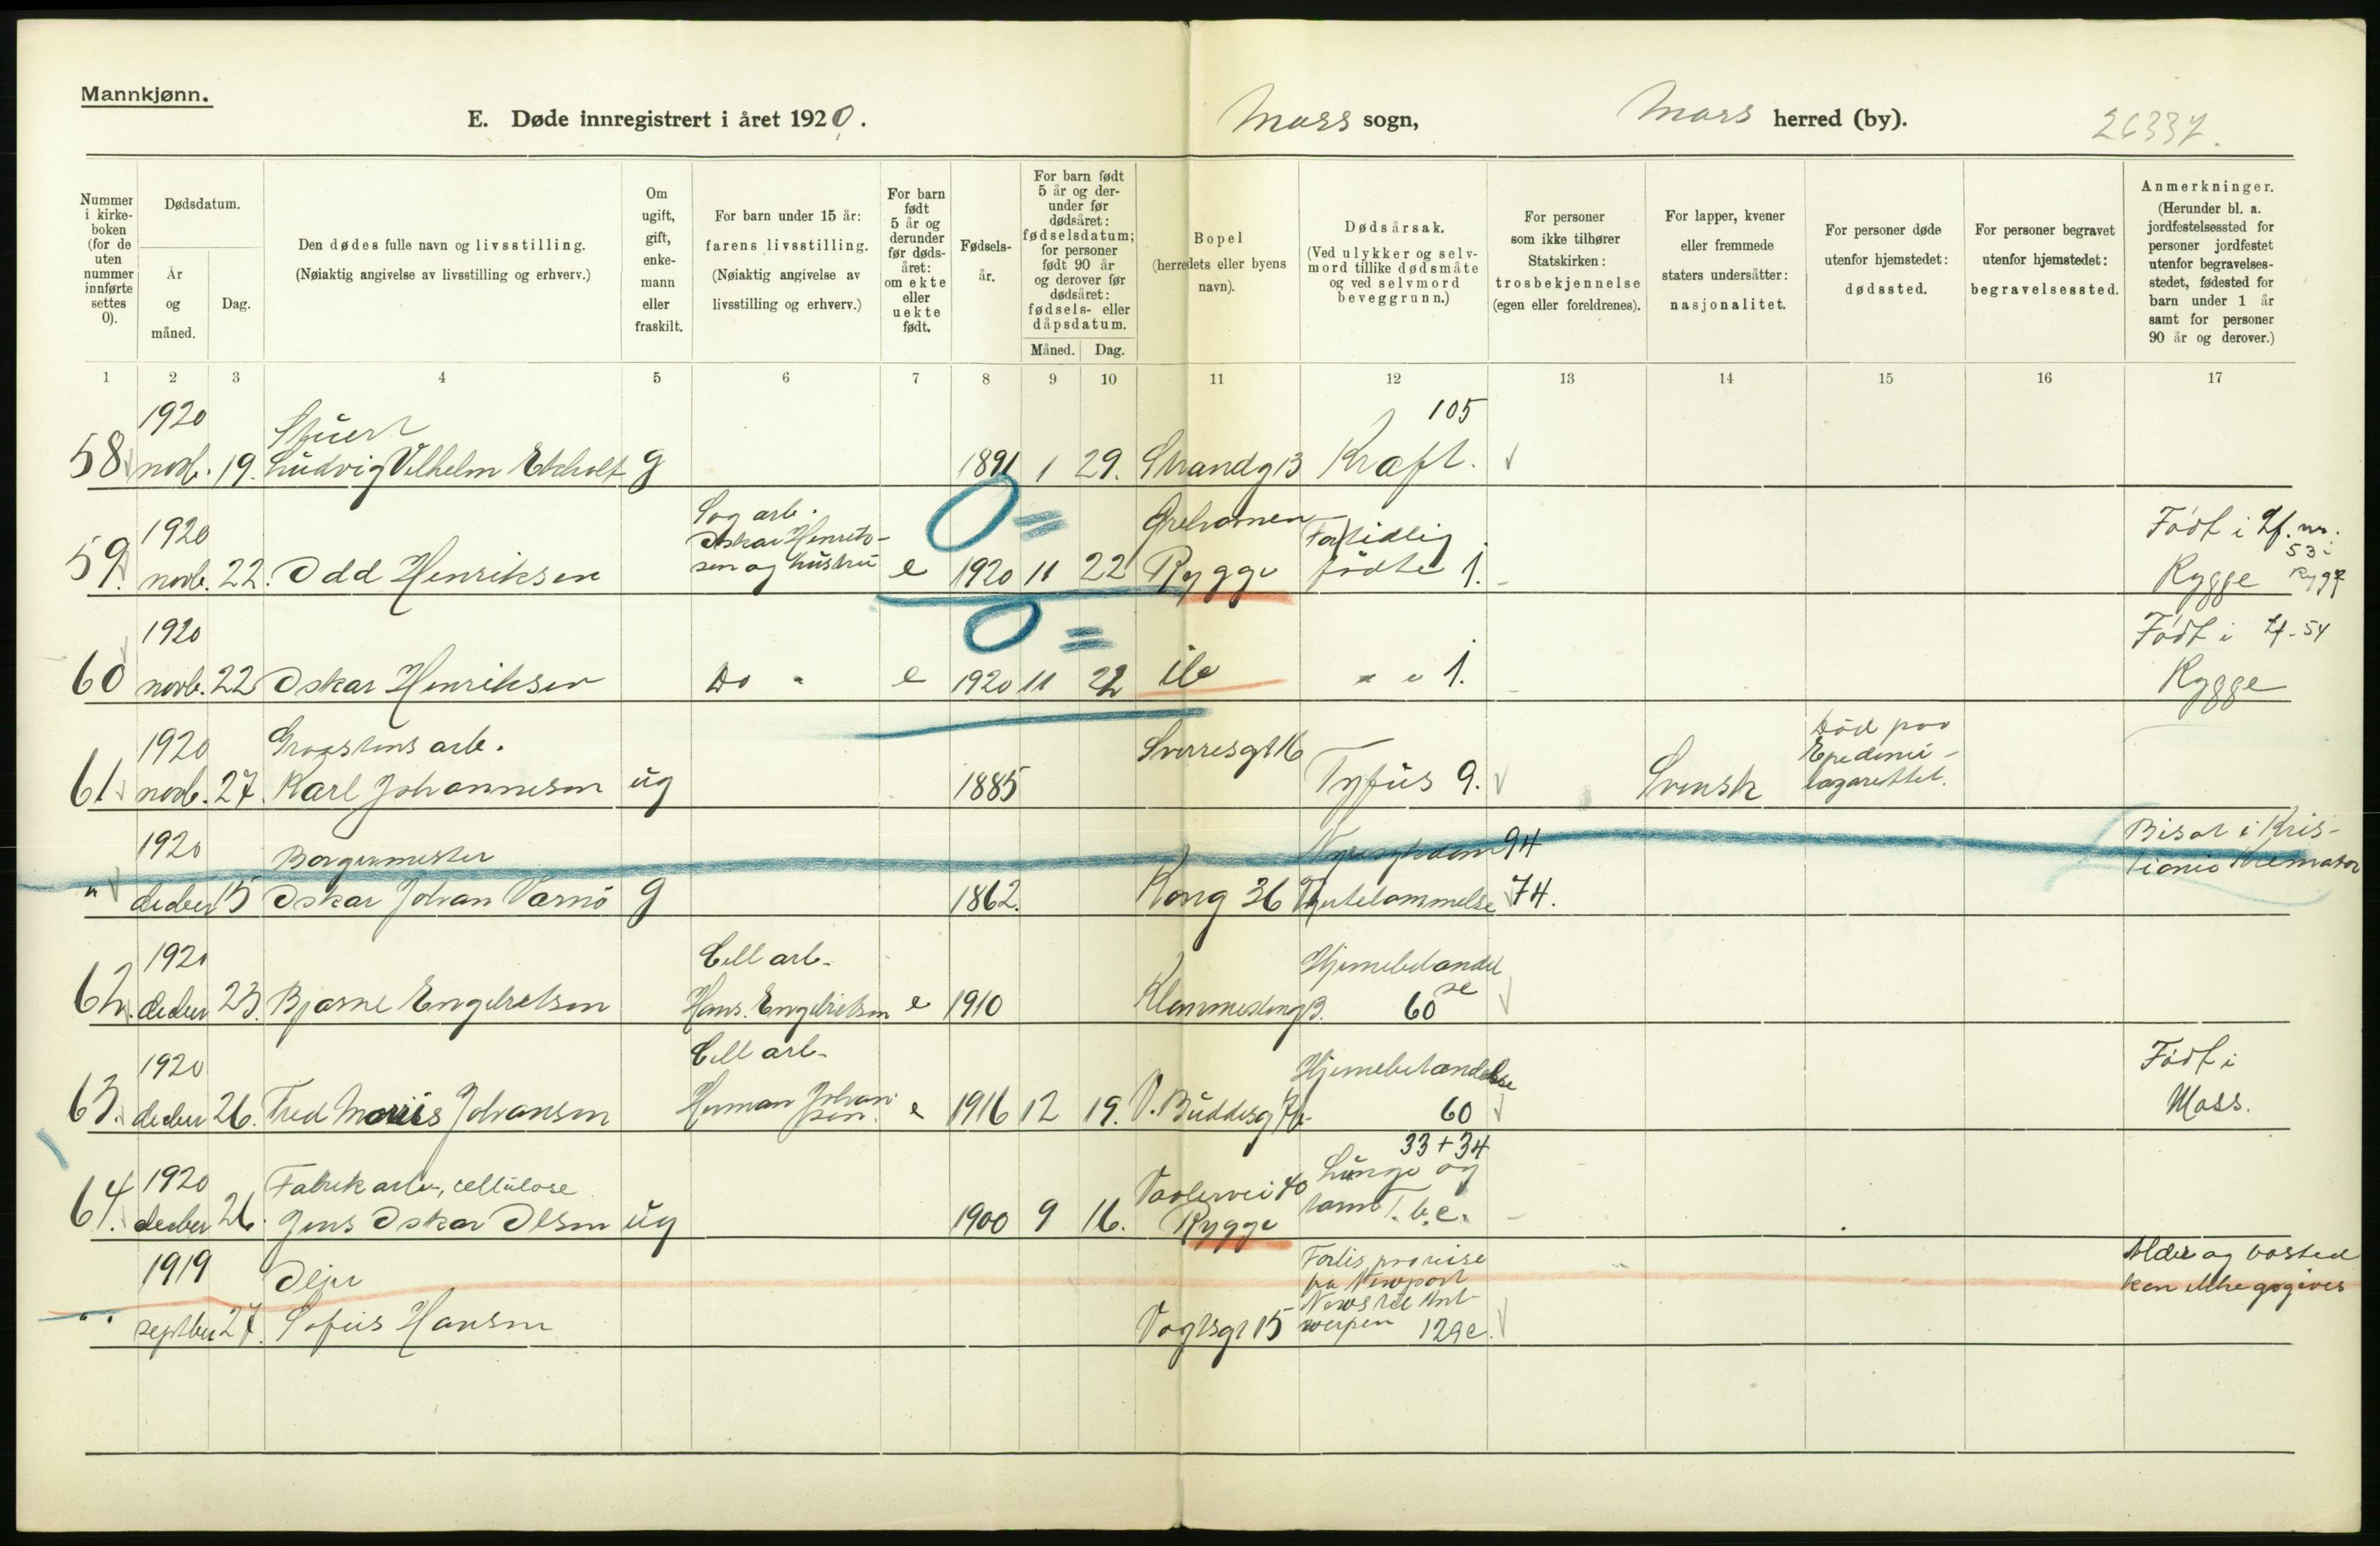 Mannkjønn.
E. Døde innregistrert i året 1920. Moss sogn, Moss herred (by). 26337.
Nummer i kirkeboken (for de uten nummer innførte settes 0).
Dødsdatum.
År og måned.
Dag.
Den dødes fulle navn og livsstilling.
(Nøiaktig angivelse av livsstilling og erhverv.)
Om ugift, gift, enkemann eller fraskilt.
For barn under 15 år: farens livsstilling.
(Nøiaktig angivelse av livsstilling og erhverv.)
For barn født 5 år og derunder før dødsåret: om ekte eller uekte født.
Fødselsår.
For barn født 5 år og derunder før dødsåret: fødselsdatum; for personer født 90 år og derover før dødsåret: fødsels- eller dåpsdatum.
Måned. Dag.
Bopel
(herredets eller byens navn).
Dødsårsak.
(Ved ulykker og selvmord tillike dødsmåte og ved selvmord beveggrunn.)
For personer som ikke tilhører Statskirken: trosbekjennelse (egen eller foreldrenes).
For lapper, kvener eller fremmede staters undersåtter: nasjonalitet.
For personer døde utenfor hjemstedet: dødssted.
For personer begravet utenfor hjemstedet: begravelsessted.
Anmerkninger.
(Herunder bl. a. jordfestelsessted for personer jordfestet utenfor begravelsesstedet, fødested for barn under 1 år samt for personer 90 år og derover.)
1 2 3 4 5 6 7 8 9 10 11 12 13 14 15 16 17
1920 Stuert 105
58 novb. 19. Ludvig Vilhelm Ekholt g 1891 1 29. Strandg 13 Kræft.
1920 Sag arb. Oskar Henriksen og hustru Grehamen For tidlig Født i Lf. nr. 53 i
59. novb. 22. Odd Henriksen e 1920 11 22 Rygge fødte 1. Rygge Rygge
1920 Født i Lf. 54
60 novb. 22 Oskar Henriksen Do " e 1920 11 22 " " 1. Rygge
1920 Graastens arb. Sverresgt 16 Død paa Epedemi-
61 novb. 27. Karl Johannesen ug 1885 Tyfus 9. Svensk lazarettet.
1920 Borgermester 94 Bisat i Kris-
" decber 15 Oskar Johan Varnö g 1862. Kong 36 Hjertelammelse 74. tiania Kremator
1920 Cell arb. Hjernebetændel
62. decber 23. Bjarne Engebretsen Hans. Engebretsen e 1910 60 se
1920 Cell arb. Hjernebetændelse Født i
63. decber 26. Fred Morris Johansen Herman Johansen. e 1916 12 19. V. Buddesg 60 Moss.
33+34
1920 Fabrik arb., cellulose Vaalervei 40 Lunge og
64. decber 26. Jens Oskar Olsen ug 1900 9 16. Rygge tarm T.b.c.
1919 Forlis paa reise fra Newport Alder og bosted
septber 27. Sofus Hansen Vogtsgt 15 News til Antwerpen 129c. kan ikke opgives